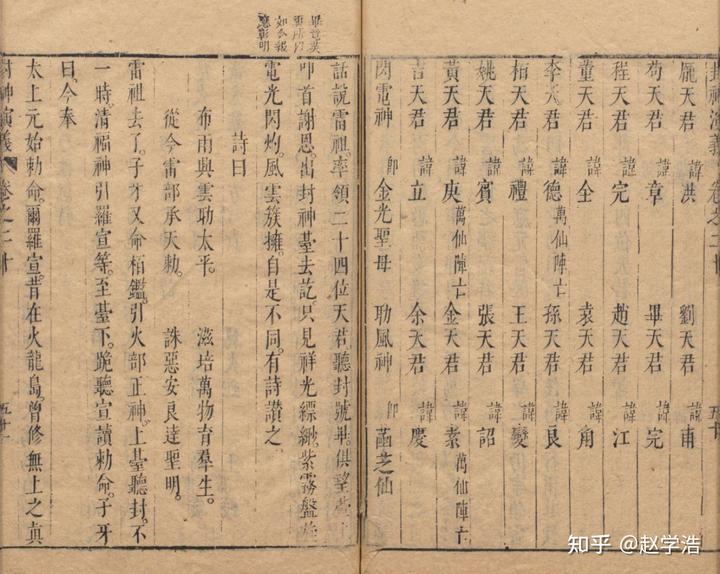 封神演義 卷之二十
龐天君 諱洪 劉天君 諱甫
苟天君 諱章 畢天君 諱完
程天君 諱完 趙天君 諱江
董天君 諱全 袁天君 諱角
李天君 諱德 萬仙陣亡 孫天君 諱良
栢天君 諱禮 王天君 諱變
姚天君 諱賓 張天君 諱詔
黃天君 諱庚 萬仙陣亡 金天君 諱素 萬仙陣亡
吉天君 諱立 余天君 諱慶
閃電神 即金光聖母 助風神 即菡芝仙
畢竟英
所以
如今報
應彰明
話說雷祖率領二十四位天君聽封號畢俱望臺
叩首謝恩。出封神臺去訖。只見祥光縹緲。紫霧盤
電光閃灼。風雲簇擁。自是不同。有詩讚之。
詩曰
布雨興雲功太平。 滋培萬物育羣生。
從今雷部承天勅。 誅惡安良達聖明。
雷祖去了。子牙又命栢鑑。引火部正神。上臺聽封。不
一時。清福神引羅宣等。至臺下。跪聽宣讀勅命。子牙
曰。今奉
太上元始勅命。爾羅宣。昔在火龍島。曾修無上之真
封神演義 卷之二十 五十一
知乎 @赵学浩